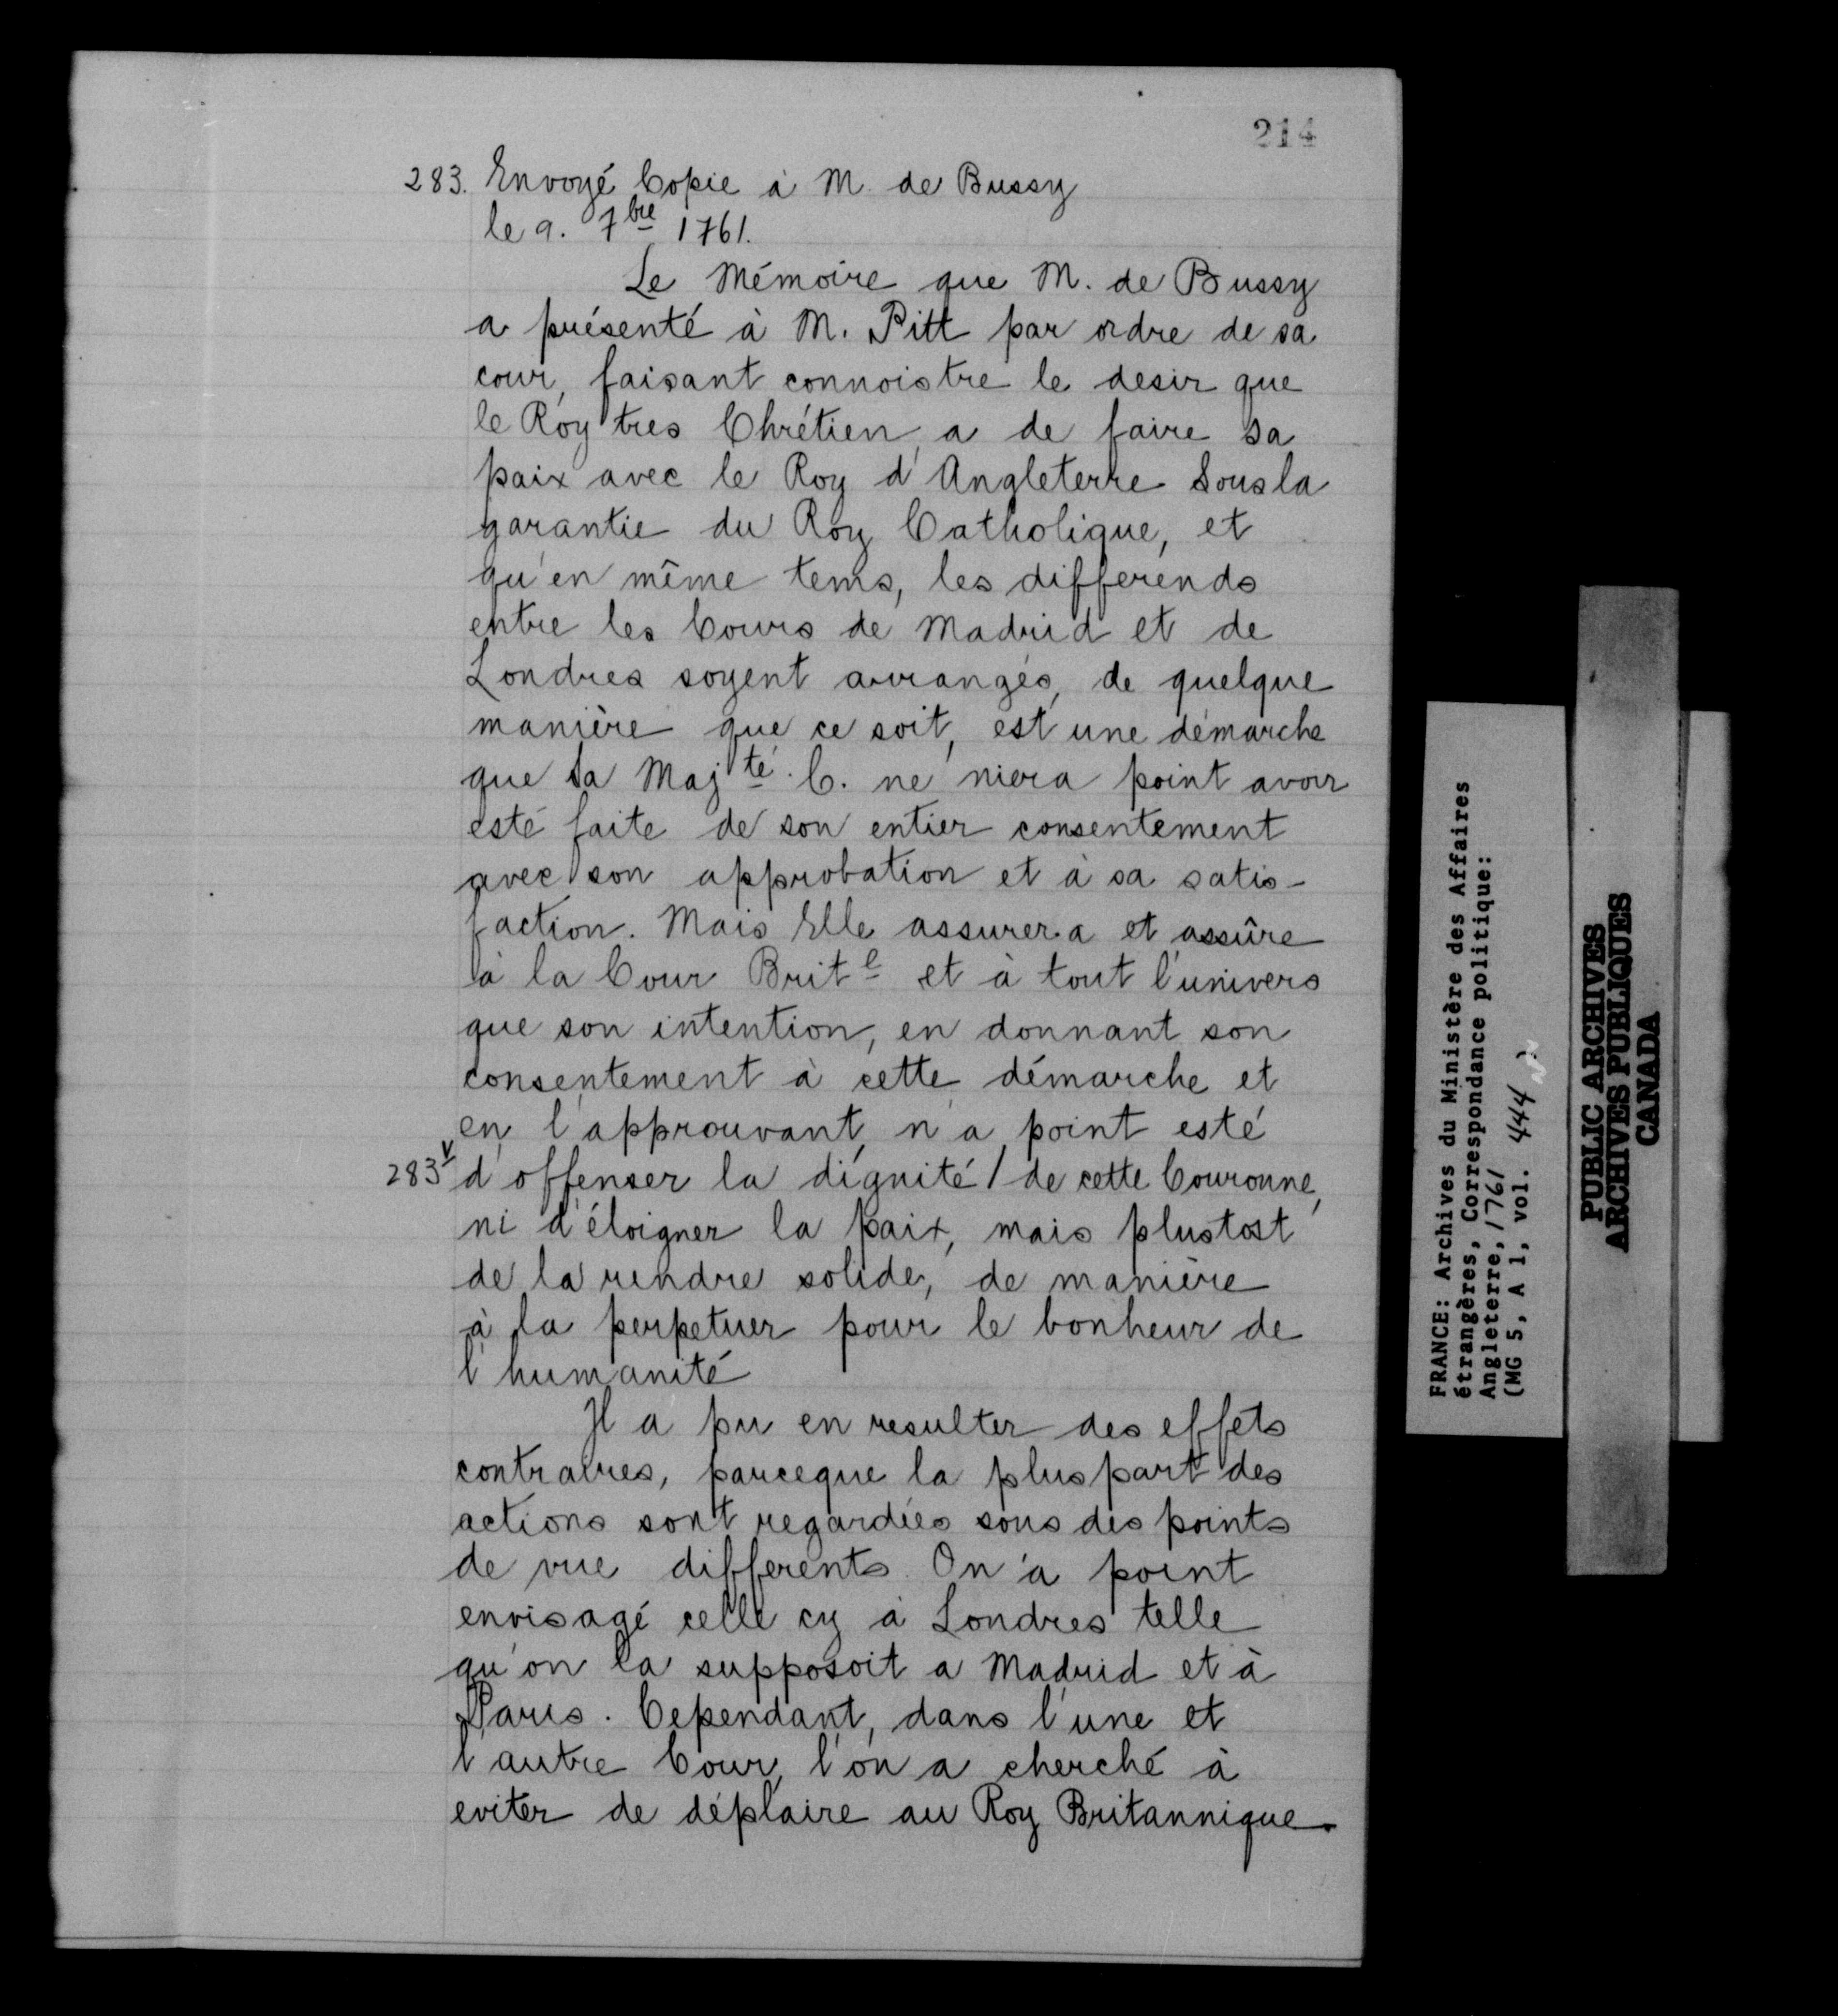 214
283. Envoyé Copie à M. de Bussy
le 9. 7bre 1761.
Le Mémoire que M. de Bussy
a présenté à M. Pitt par ordre de sa
cour, faisant connoistre le desir que
le Roy tres Chrétien, a de faire sa
paix avec le Roy d'Angleterre sous la
garantie du Roy Catholique, et
qu'en même tems, les differends
entre les Cours de Madrid et de
Londres soyent arrangés, de quelque
manière que ce soit, est une démarche
que Sa Majté. C. ne niera point avoir
esté faite de son entier consentement
avec son approbation et à sa satis-
faction. Mais Elle assurera et assûre
à la Cour Brite et à tout l'univers
que son intention, en donnant son
consentement à cette démarche et
en l'approuvant, n'a point esté
283v d'offenser la dignité / de cette Couronne,
ni d'éloigner la paix, mais plustost
de la rendre solide, de manière
à la perpetuer pour le bonheur de
l'humanité
Il a pu en resulter des effets
contraires, parceque la pluspart des
actions sont regardées sous des points
de vue differents. On a point
envisagé celle cy à Londres telle
qu'on la supposoit a Madrid et à
Paris. Cependant, dans l'une et
l'autre Cour, l'on a cherché à
eviter de déplaire au Roy Britannique.
FRANCE: Archives du Ministère des Affaires
étrangères, Correspondance politique:
Angleterre, 1761
(MG 5, A 1, vol. 444
PUBLIC ARCHIVES
ARCHIVES PUBLIQUES
CANADA